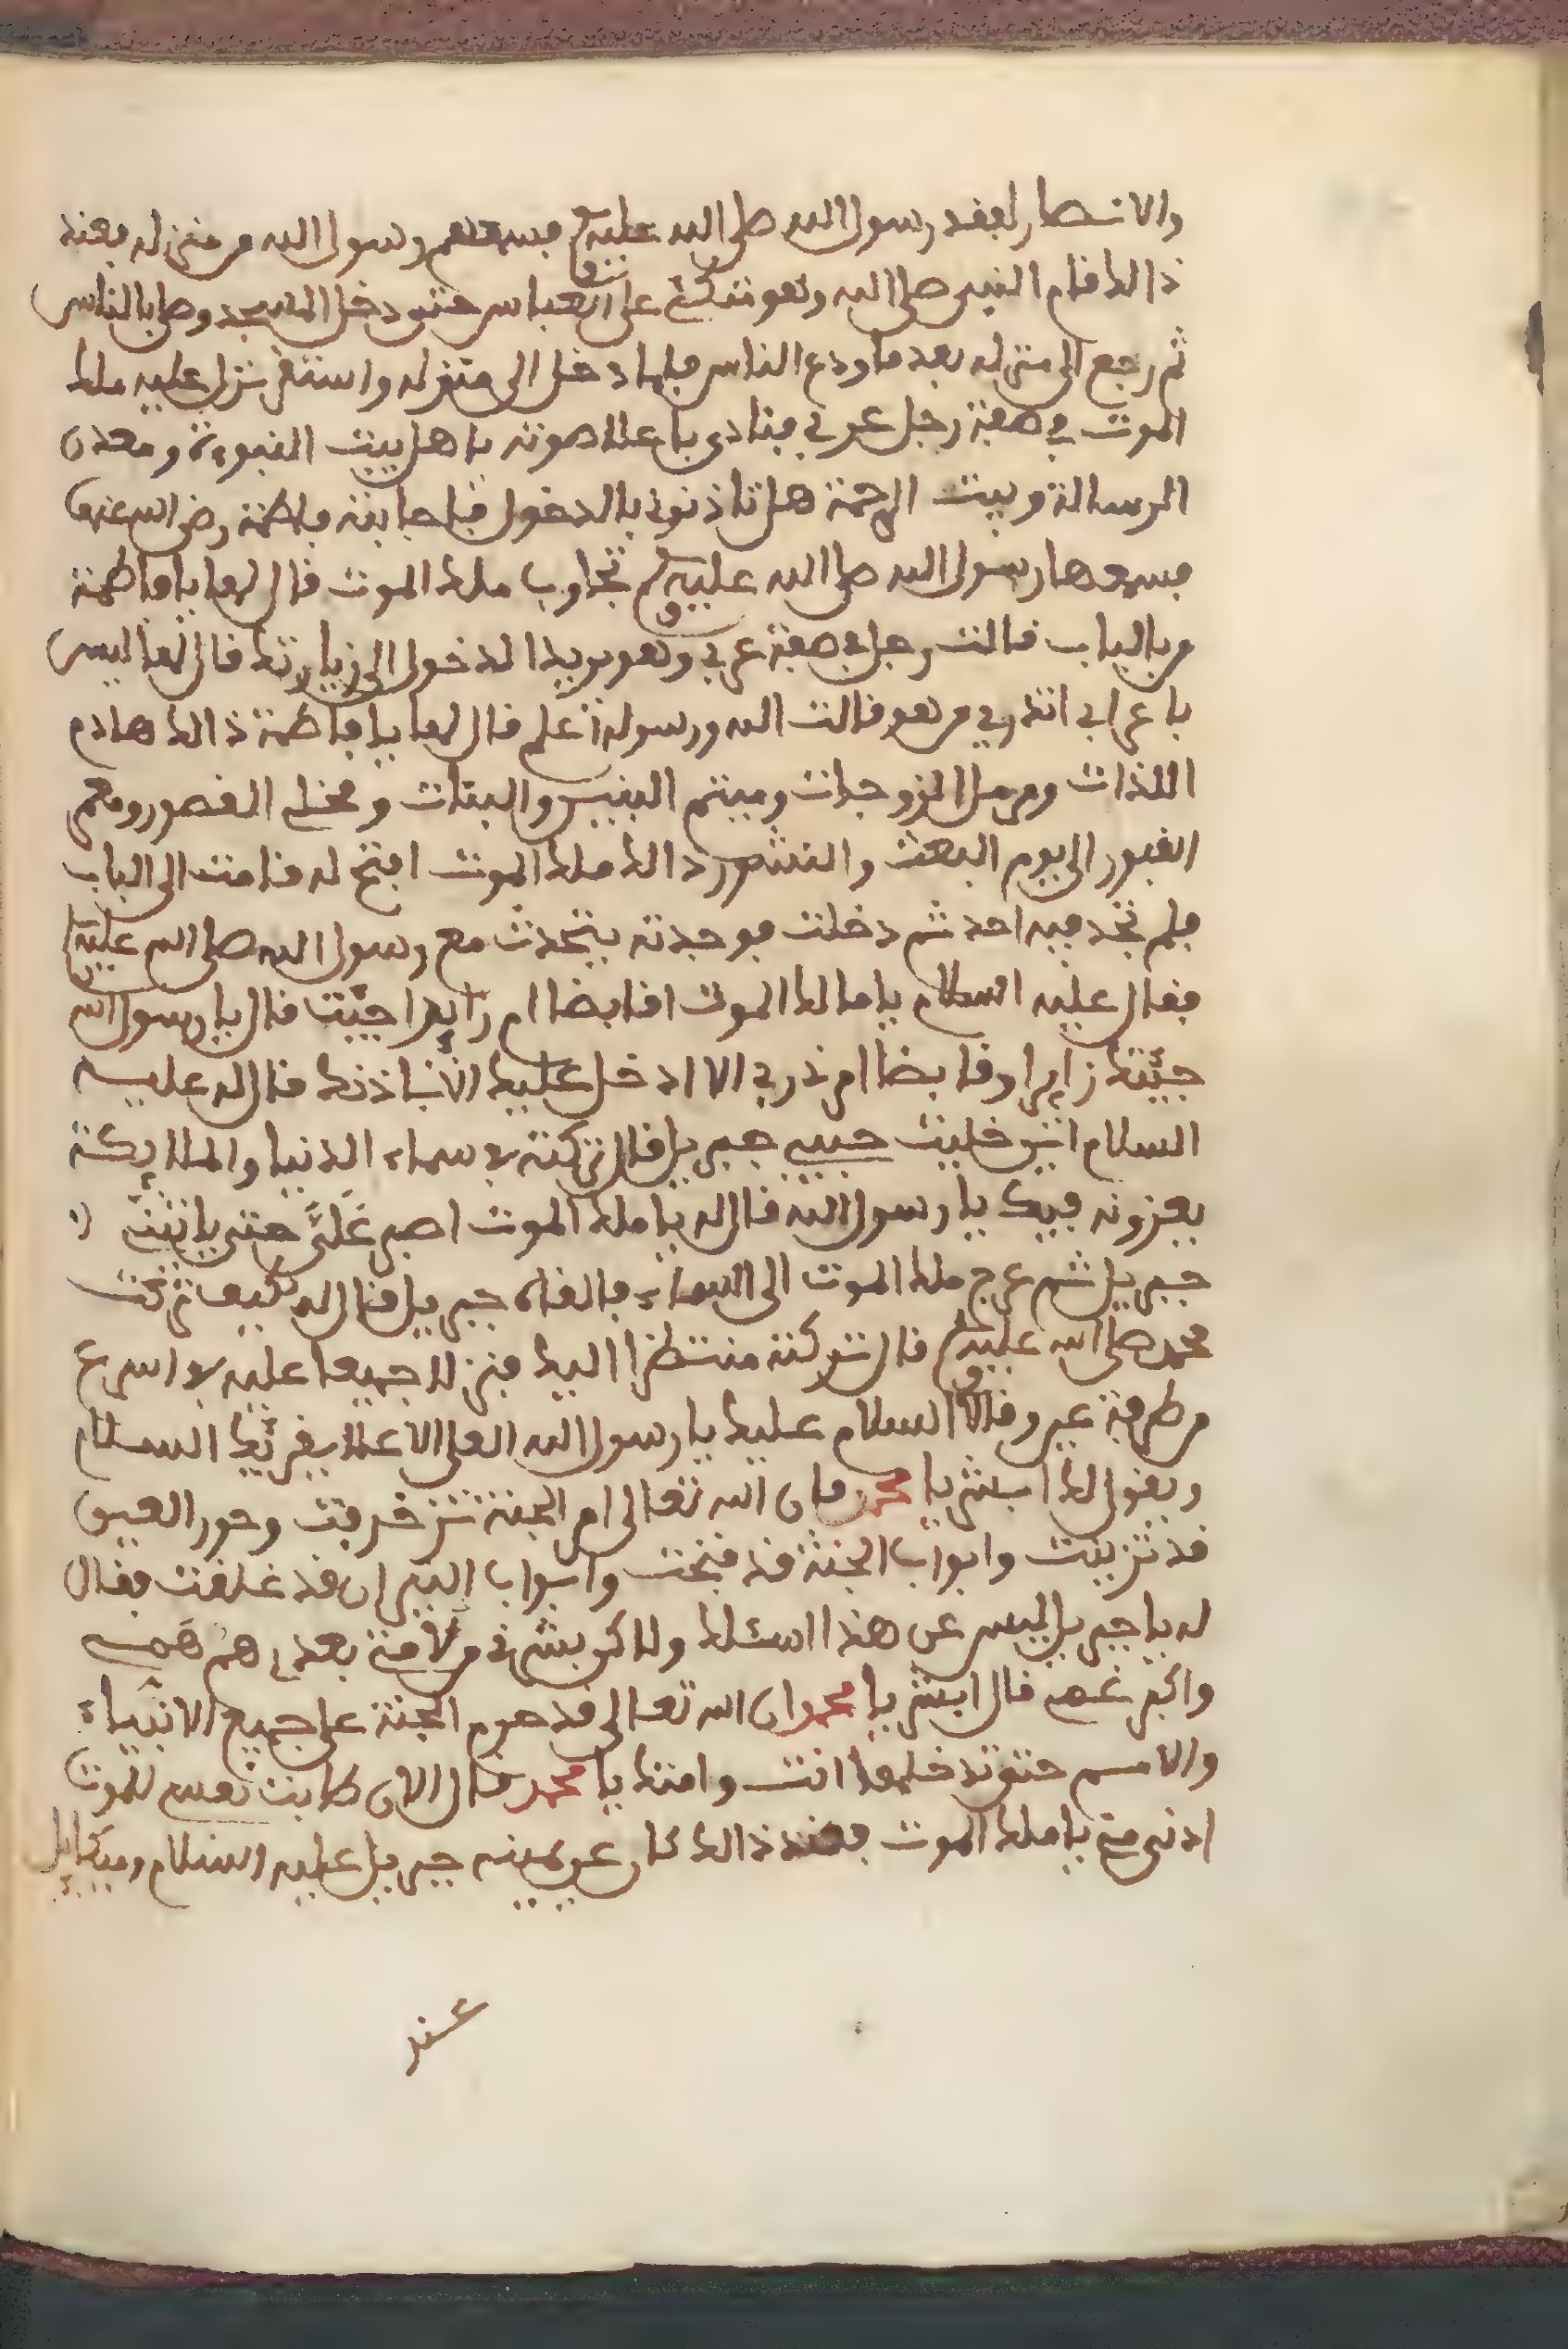 والانصار لفقد رسول الله صلى الله عليه وسلم فسمعهم رسول الله من منزله فعند
ذالك قام النبي صلى الله وهو متكئ على العباس حتى دخل المسجد وصلى بالناس
ثم رجع الى منزله بعد ما ودع الناس فلما دخل الى منزله واستقر نزل عليه ملك
الموت في صفة رجل عربي فنادى باعلا صوته يا هل بيت النبوءة ومعدن
الرسالة وبيت الرحمة هل تاذنوني بالدخول فاجابته فاطمة رضي الله عنها
فسمعها رسول الله صلى الله عليه وسلم تجاوب ملك الموت قال لها يا فاطمة
من بالباب قالت رجل في صفة عربي وهو يريد الدخول الى زيارتك قال لها ليس
باعرابي اتدري من هو قالت الله ورسوله اعلم قال لها يا فاطمة ذالك هادم
اللذات ومرمل الزوجات وميتم البنين والبنات ومخلي القصور ومعمر
القبور الى يوم البعث والنشور ذالك ملك الموت افتح له قامت الى الباب
فلم تجد فيه احد ثم دخلت فوجدته يتحدث مع رسول الله صلى الله عليه
فقال عليه السلام يا مالك الموت اقابضا ام زايرا جيت قال يا رسول الله
جيتك زايرا وقابضا امرني ربي الا ادخل عليك الا باذنك قال له عليه
السلام اين خليت حبيبي جبريل قال تركته في سماء الدنيا والملايكة
يعزونه فيك يا رسول الله قال له يا ملك الموت اصبر عَلَيَّ حتى ياتيني
جبريل ثم عرج ملك الموت الى السماء فالقاه جبريل فقال له كيف تركت
محمد صلى الله عليه وسلم قال تركته منتظرا اليك فنزلا جميعا عليه في اسرع
من طرفة عين وقالا السلام عليك يا رسول الله العلي الاعلا يقرئك السلام
ويقول لك ابشر يا محمد فان الله تعالى امر الجنة تتزخرفت وحور العين
قد تزينت وابواب الجنة قد فتحت وابواب النيران قد غلقت فقال
له يا جبريل ليس عن هذا اسئلك ولاكن بشرني من لامتي بعدي هم همي
واكبر غمي قال ابشر يا محمد ان الله تعالى قد حرم الجنة على جميع الانبياء
والامم حتى تدخلها انت وامتك يا محمد قال الان طابت نفسي للموت
ادني مني يا ملك الموت فعند ذالك كان عن يمينه جبريل عليه السلام وميكايل
عند